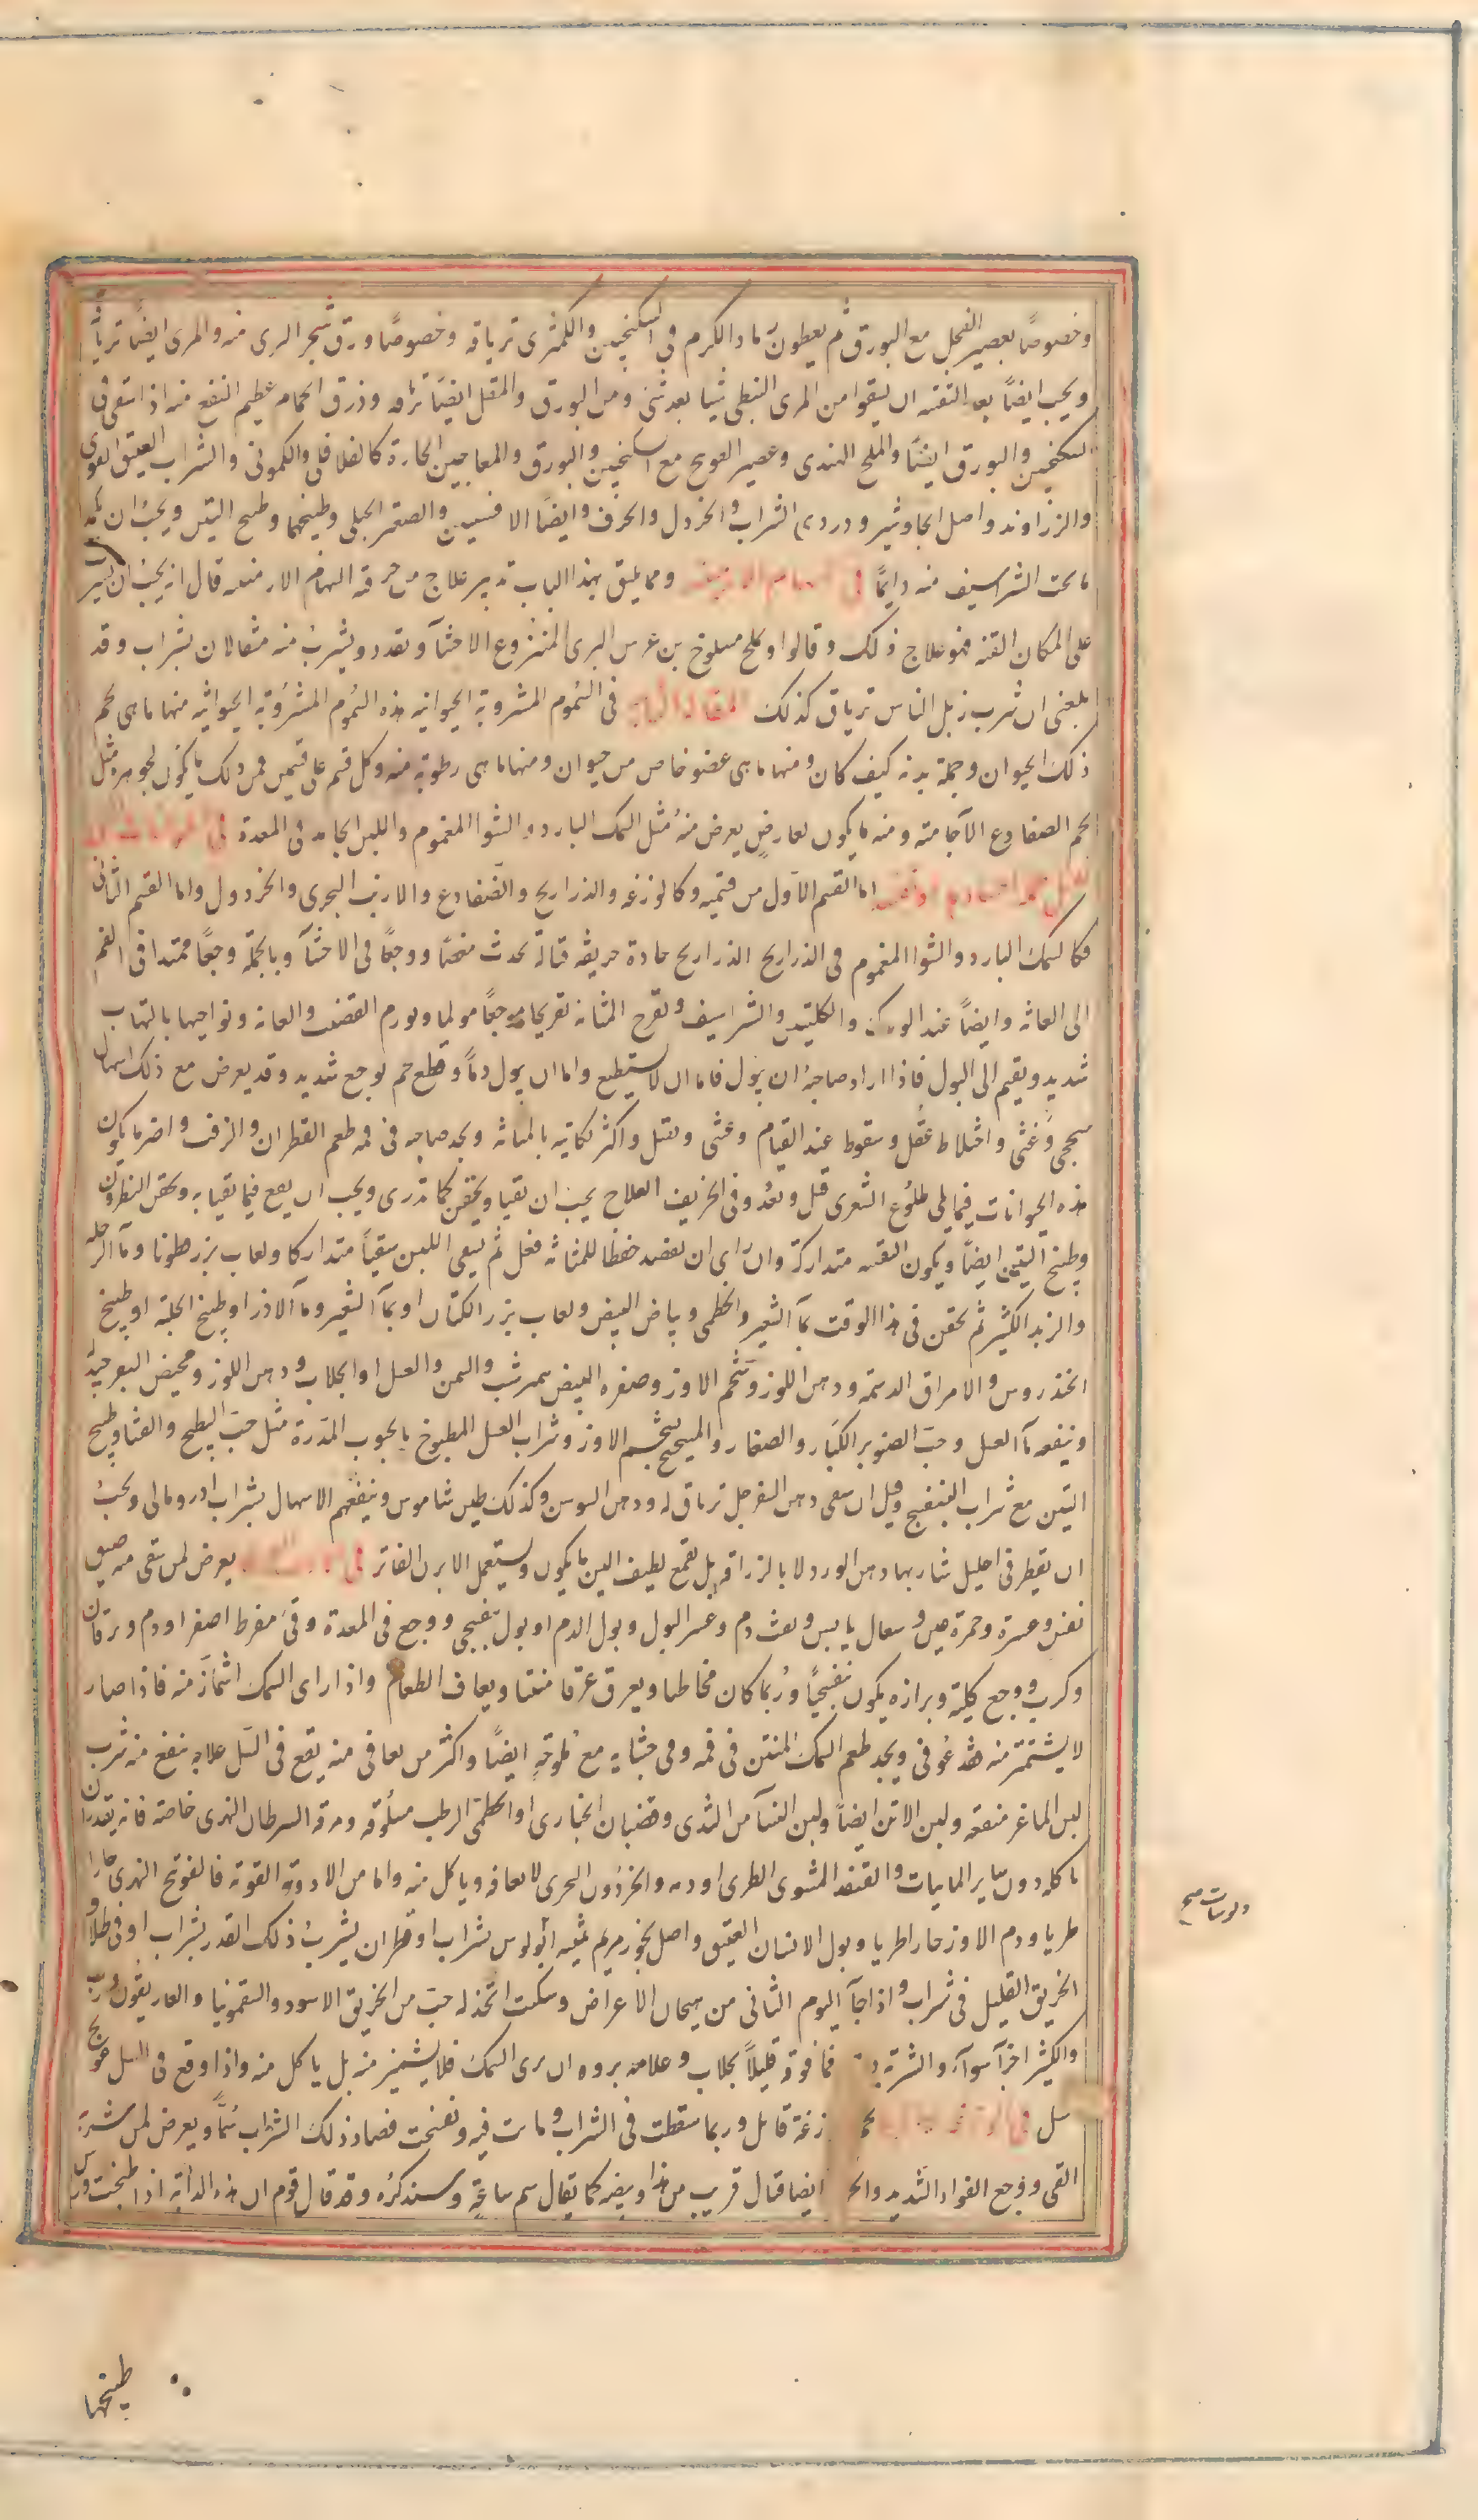 وخصوصًا بعصير الفجل مع البورق ثم يعطون رماد الكرم في السكنجبين والكمثرى ترياقه وخصوصًا ورق شجر البرى منه والمرى ايضًا ترياقه
ويجب ايضًا بعد التقيه ان يسقوا من المرى النبطى شيا بعد شئ ومن البورق والمقل ايضًا وذرق الحمام عظيم النفع منه اذا سقى فى
السكنجبين والبورق ايضًا والملح الهندى وعصير العوسج مع السكنجبين والبورق والمعاجين الحارة كالفلافلى والكمونى والشراب العتيق القوى
والزراوند واصل الجاوشير ودردى الشراب والخردل والحرف وايضًا الافسنتين والصعتر الجبلى وطبيخها وطبيخ التين ويجب ان
ما تحت الشراسيف منه دايمًا فى ومما يليق بهذا الباب تدبير علاج من السهام الارمنيه قال انه يجب ان
على المكان القنه فهو علاج ذلك وقالوا وكلح مسلوخ بن عرس البرى المنزوع الاحشآ ويقدد ويشرب منه مثقالان بشراب وقد
بلغنى ان شرب زبل الناس ترياق كذلك المقالة الثانية فى السُموم المشروبة الحيوانيه هذه السُموم المشروبة الحيوانيه منها ما هى لحم
ذلك الحيوان وجملة بدنه كيف كان ومنها ما هى عضو خاص من حيوان ومنها ما هى رطوبة منه وكل قسم على قسمين فمن ذلك ما يكون لجوهره مثل
لحم الضفادع الآجاميه ومنه ما يكون لعارض يعرض منه مثل السمك البارد والشوا المغموم واللبن الجامد فى المعدة فى
اما القسم الاول من قسميه وكالوزغه والذراريح والضفادع والارنب البحرى والحردول واما القسم الثانى
فكالسمك البارد والشوا المغموم فى الذراريح الذراريح حادة حريفه قتالة تحدث مغصًا ووجعًا فى الاحشآ وبالجملة وجعًا ممتدا فى الفم
الى العانه وايضًا عند الورك والكليتين والشراسيف وتقرح المثانه تقريحا موجعًا مولما ويورم القضيب والعانه ونواحيها بالتهاب
شديد ويقيم الى البول فاذا اراد صاحبهُ ان يبول فاما ان لا يستطيع واما ان يبول دمًا وقطع لحم بوجع شديد وقد يعرض مع ذلك اسهال
سحجى وغثى واختلاط عقل وسقوط عند القيام وغشى وثقل واكثر نكايته بالمثانه ويجد صاحبه فى فمه طعم القطران والزفت واضر ما يكون
هذه الحيوانات فيما يلى طلوع الشعرى قبل وبعد وفى الخريف العلاج يجب ان يقيا ويحقن كما تدرى ويجب ان يقع فيما يقيا به ويحقن النطرون
وطبيخ التين ايضًا ويكون القيه متداركة وان راى ان يفصد حفظًا للمثانه فعل ثم يسقى اللبن سقيًا متداركا ولعاب بزر قطونا ومآ الرجله
والزبد الكثير ثم يحقن فى هذا الوقت بمآ الشعير والخطمى وبياض البيض ولعاب بزر الكتان او بمآ الشعير ومآ الارز او طبيخ الحلبه او طبيخ
الخندروس والامراق الدسمه ودهن اللوز وشحم الاوز وصفره البيض بمرشب والسمن والعسل او الجلاب ودهن اللوز ومخيض البقر جيد
وينفعه مآ العسل وحب الصنوبر الكبار والصغار والميبختج بشحم الاوز وشراب العسل المطبوخ بالحبوب المدرة مثل حب البطيخ والقثا وطبيخ
التين مع شراب البنفسج وقيل ان سقى دهن السفرجل ترياق له ودهن السوسن وكذلك طين شاموس وينفعهم الاسهال بشراب ادرومالى ويجب
ان يقطر فى احليل شاربها دهن الورد لا بالزراقه بل بقمع لطيف الين ما يكون ويستعمل الابزن الفاتر فى يعرض لمن سقى منه ضيق
نفس وعسرة وحمرة عين وسعال يابس ونفث دم وعسر البول وبول الدم او بول بنفسجى ووجع فى المعدة وقئ مفرط اصفر او دم ويرقان
وكرب ووجع كلية وبرازه يكون بنفسجيًا وربما كان مخاطيا ويعرق عرقا منتنا ويعاف الطعام واذا راى السمك اشمأز منه فاذا صار
لا يشمئز منه فقد عُوفى ويجد طعم السمك المنتن فى فمه وفى جشايه مع ملوحةٍ ايضًا واكثر من يعافى منه يقع فى السل علاجه ينفع منه شرب
لبن الماعز منفعه ولبن الاتن ايضًا ولبن النسآ من الثدى وقضبان الخبازى او الخطمى الرطب مسلوقه ومرقة السرطان النهرى خاصة فانه يقدر ان
ياكله دون ساير المايات والقنفد المشوى الطرى او دمه والحرذون البحرى لا يعافه وياكل منه واما من الادوية القويه فالفونج النهرى حارا
طريا ودم الاوز حارا طريا وبول الانسان العتيق واصل بخور مريم ثمنيه اثولوس بشراب او قطران يشرب ذلك القدر بشراب او فى طلا او
الخربق القليل فى شراب واذا جآ اليوم الثانى من هيجان الاعراض وسكنت اتخذ له حب من الخربق الاسود والسقمونيا والغاريقون ورب
والكثير اجزآ سوآ والشربة فما فوقه قليلًا بجلاب وعلامة بروه ان يرى السمك فلا يشمئز منه بل ياكل منه واذا وقع فى السل عولج
سل فى زغة قاتل وربما سقطت فى الشراب وماتت فيه وتفسخت فصار ذلك الشراب سُمًّا ويعرض لمن شربه
القى ووجع الفواد الشديد ايضا قتال قريب من هذا وبيضه كما يقال سم ساعة وسنذكره وقد قال قوم ان هذه الدابه اذا طبخت
طبيخها